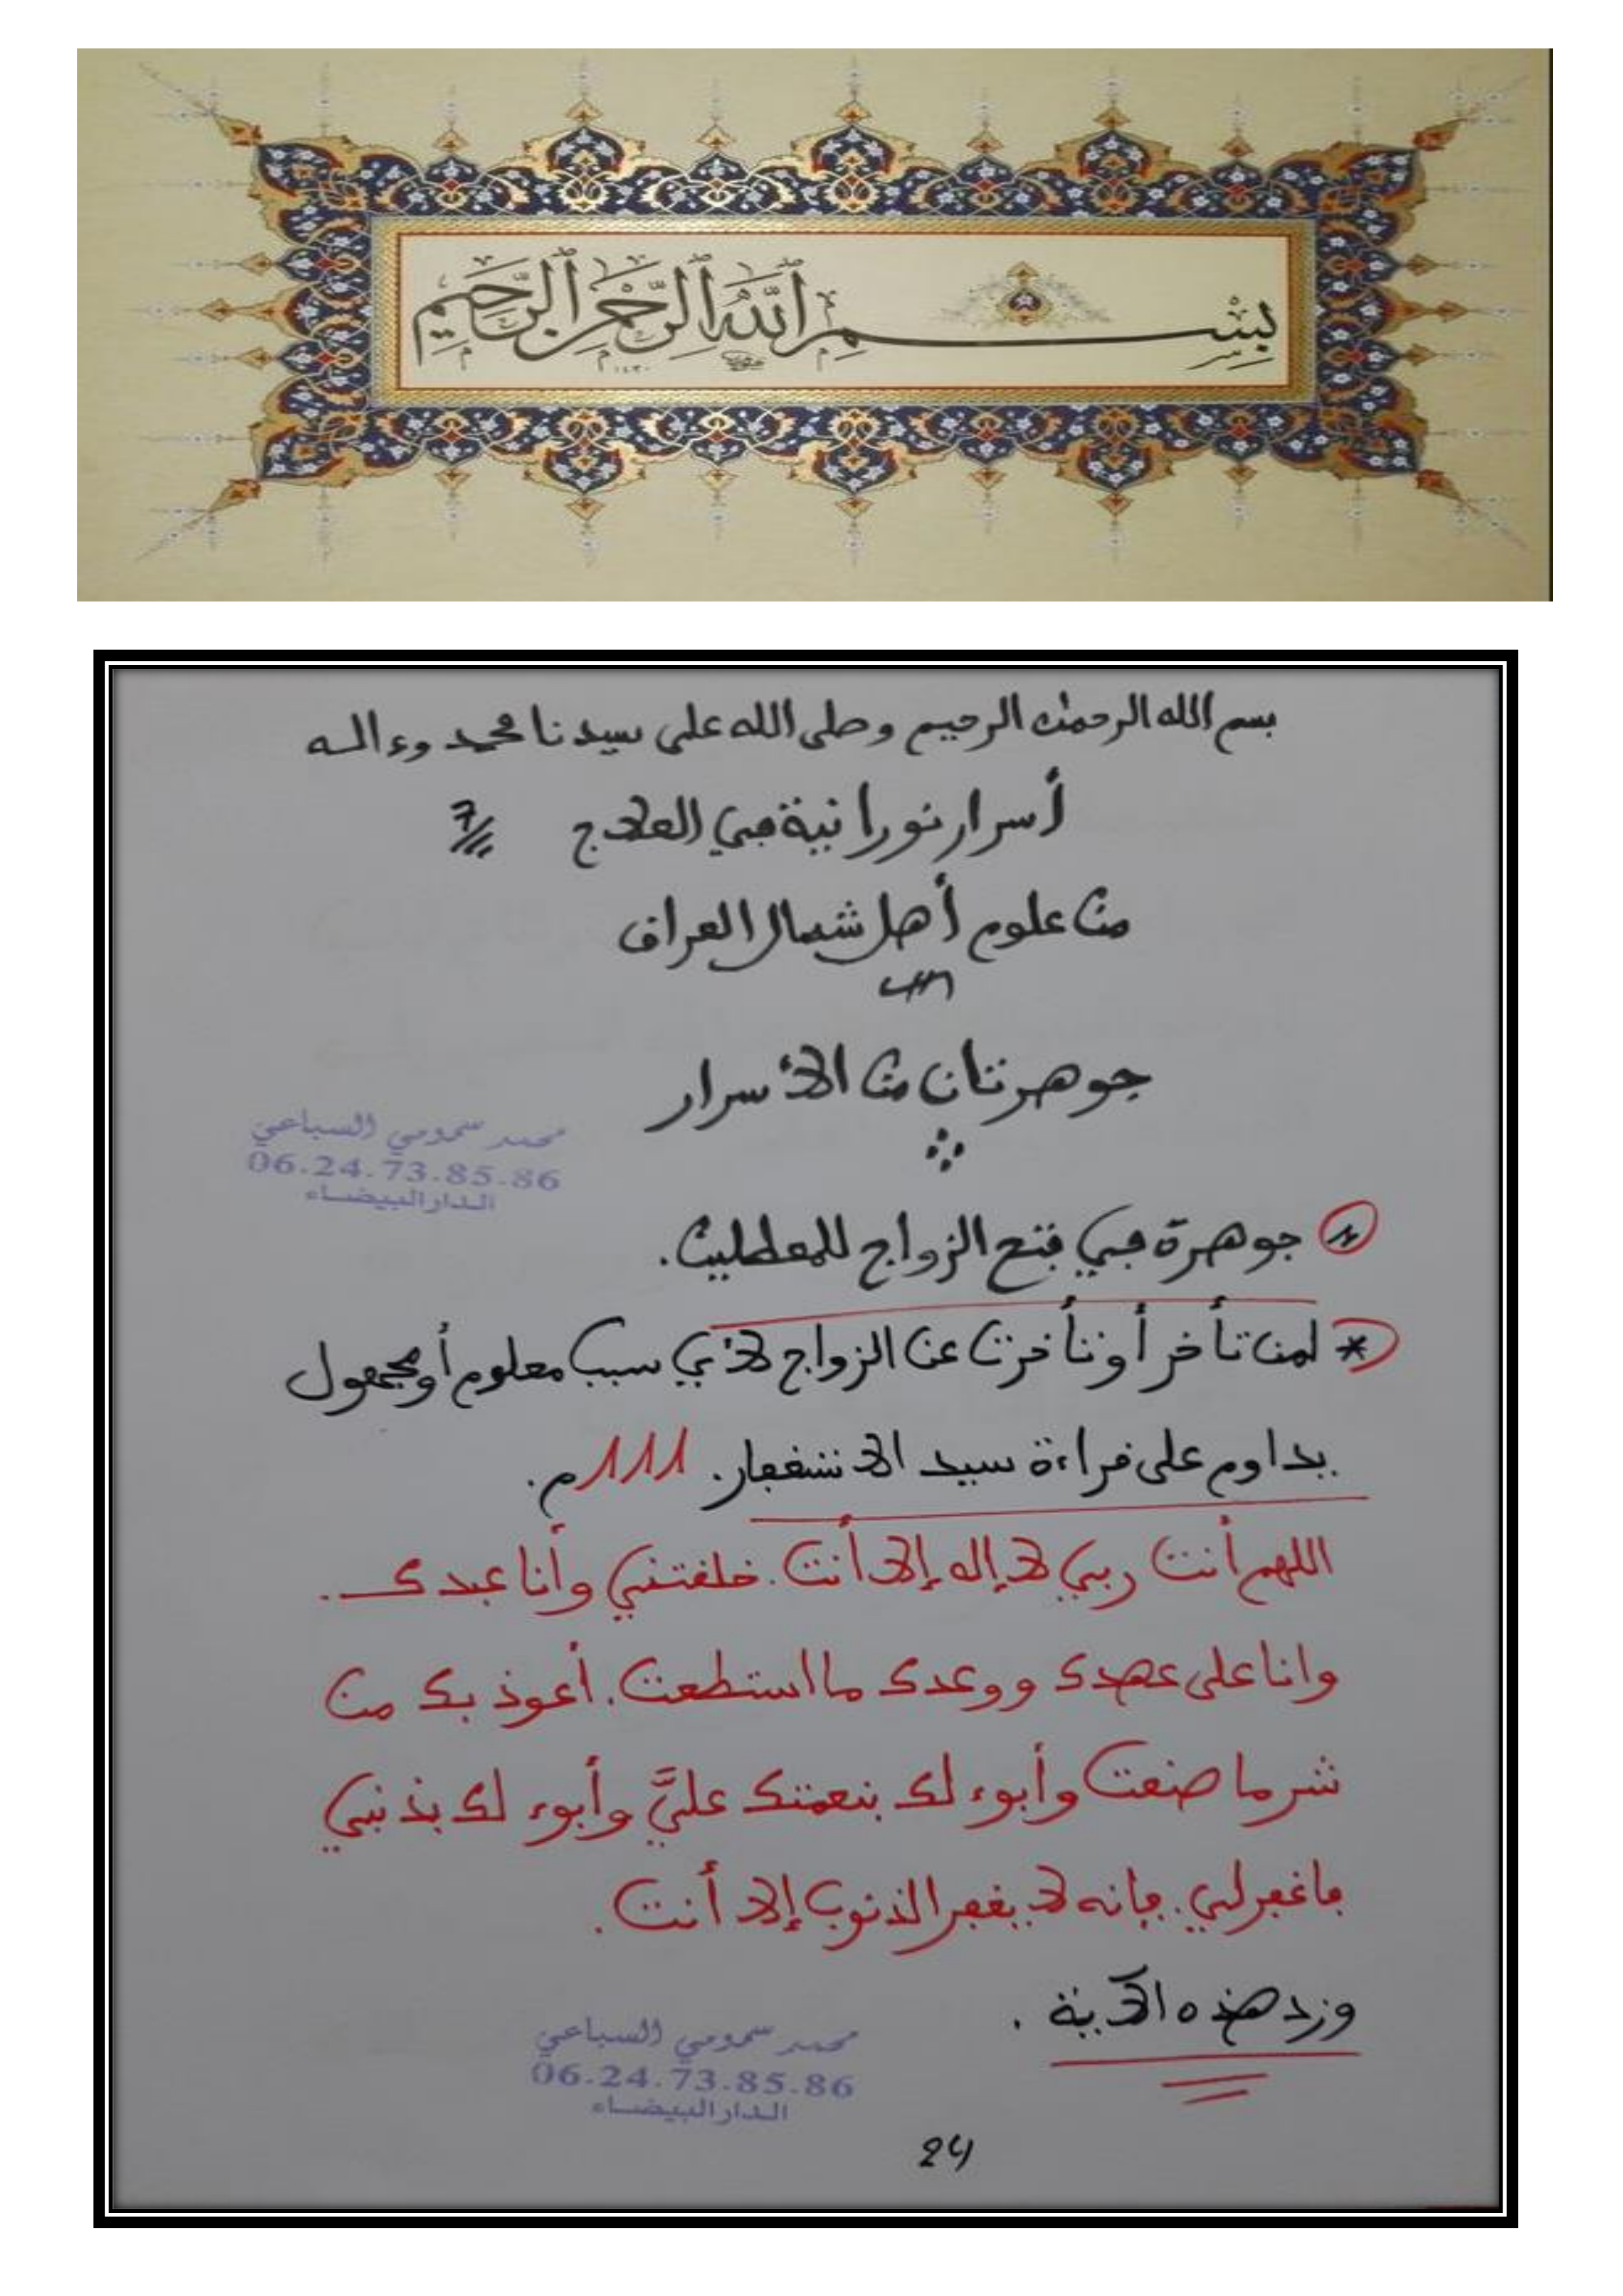 بسم الله الرحمن الرحيم
١٤٣٠
بسم الله الرحمن الرحيم وصلى الله على سيدنا محمد وءاله
أسرار نورانية في العلاج 7
من علوم أهل شمال العراق
جوهرتان من الأسرار
محمد سمومي السباعي
06.24.73.85.86
الدار البيضاء
جوهرة في فتح الزواج للمعطلين.
* لمن تأخر أو تأخرت عن الزواج لأي سبب معلوم أو مجهول
يداوم على قراءة سيد الاستغفار. 111م.
اللهم أنت ربي لا إله إلا أنت. خلقتني وأنا عبدك.
وانا على عهدك ووعدك ما استطعت. أعوذ بك من
شر ما صنعت وأبوء لك بنعمتك عليَّ وأبوء لك بذنبي
فاغفر لي. فإنه لا يغفر الذنوب إلا أنت.
وزد هذه الآية.
محمد سمومي السباعي
06.24.73.85.86
الدار البيضاء
24